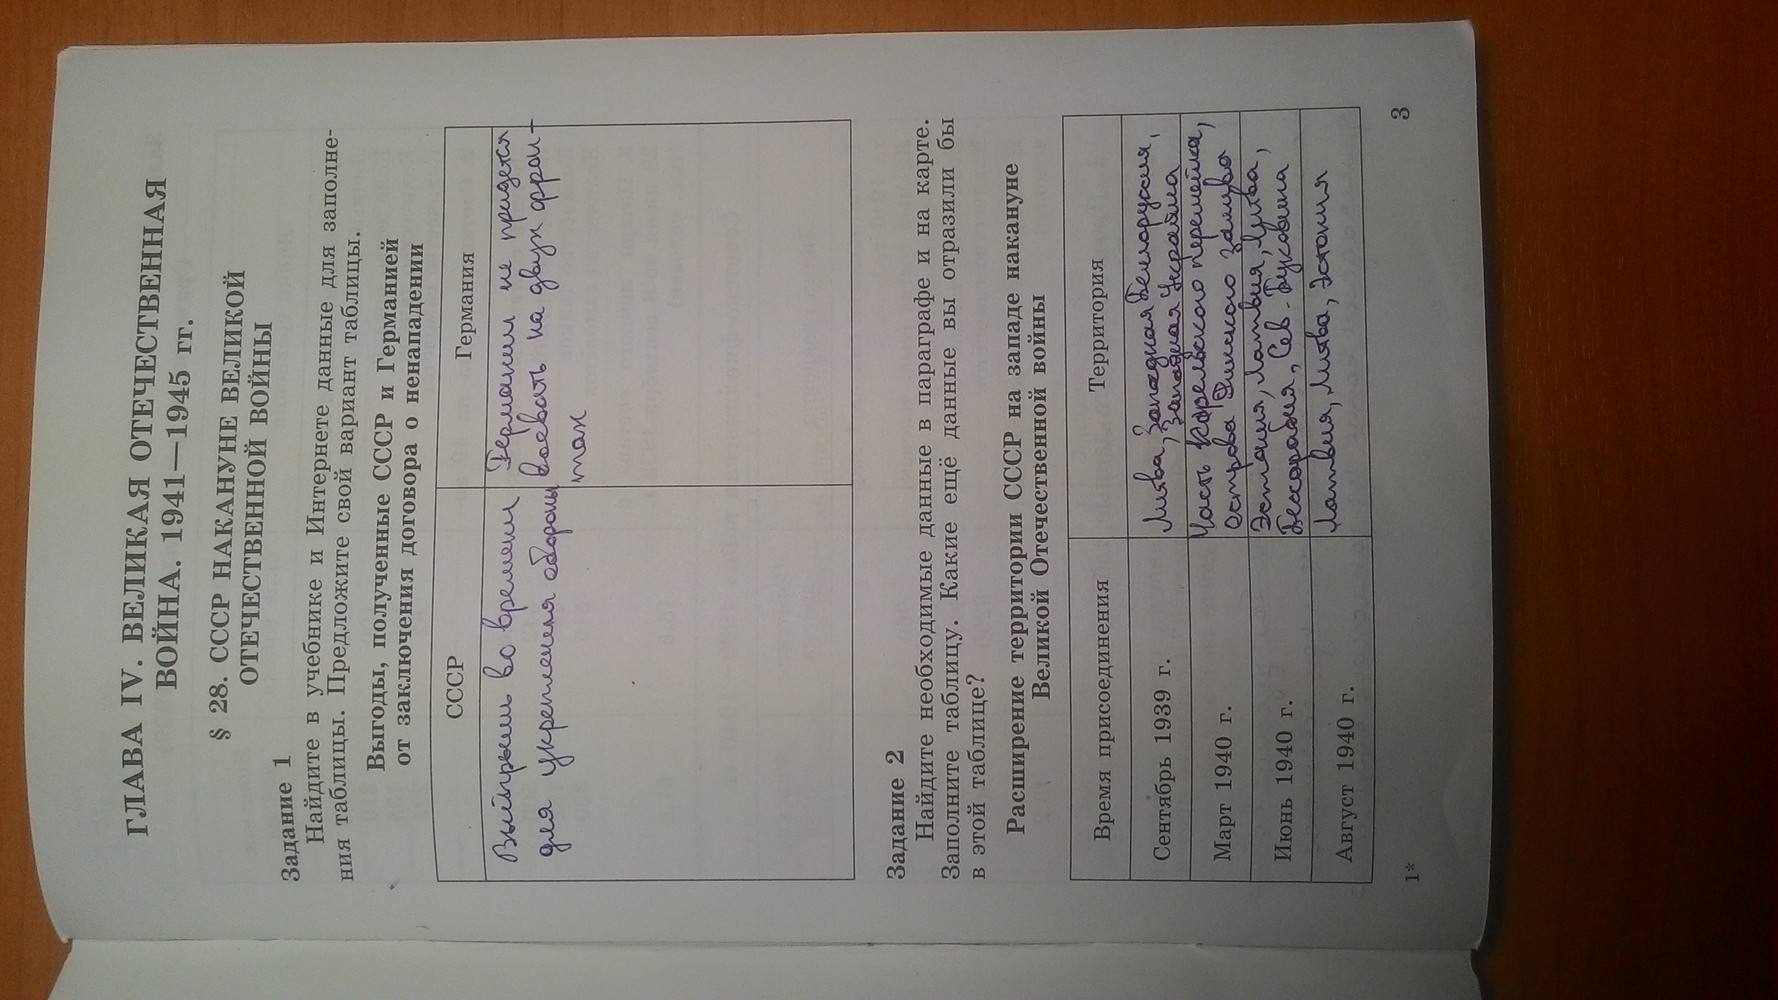 ГЛАВА IV. ВЕЛИКАЯ ОТЕЧЕСТВЕННАЯ
ВОЙНА. 1941—1945 гг.
§ 28. СССР НАКАНУНЕ ВЕЛИКОЙ
ОТЕЧЕСТВЕННОЙ ВОЙНЫ
Задание 1
Найдите в учебнике и Интернете данные для заполне-
ния таблицы. Предложите свой вариант таблицы.
Выгоды, полученные СССР и Германией
от заключения договора о ненападении
СССР
Германия
Выйгрыш во времени
для укрепления обороны
Германии не придется
воевать на двух фрон-
тах
Задание 2
Найдите необходимые данные в параграфе и на карте.
Заполните таблицу. Какие ещё данные вы отразили бы
в этой таблице?
Расширение территории СССР на западе накануне
Великой Отечественной войны
Время присоединения
Территория
Сентябрь 1939 г.
Литва, Западная Белоруссия,
Западная Украина
Март 1940 г.
Часть Карельского перешейка,
острова Финского залива
Июнь 1940 г.
Эстония, Латвия, Литва,
Бессарабия, Сев. Буковина
Август 1940 г.
Латвия, Литва, Эстония
1*
3